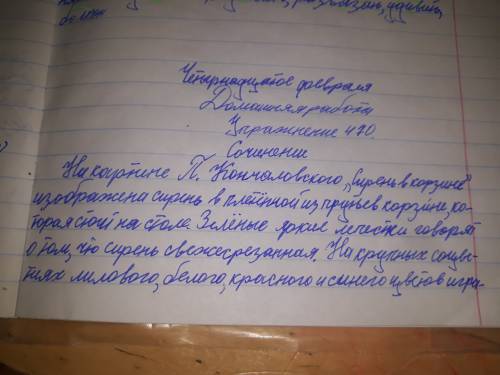 Четырнадцатое февраля
Домашняя работа
Упражнение 470.
Сочинение
На картине П. Кончаловского „Сирень в корзине"
изображена сирень в плетёной из прутьев корзине, ко-
торая стоит на столе. Зелёные яркие лепестки говорят
о том, что сирень свежесрезанная. На крупных соцве-
тиях лилового, белого, красного и синего цветов игра-